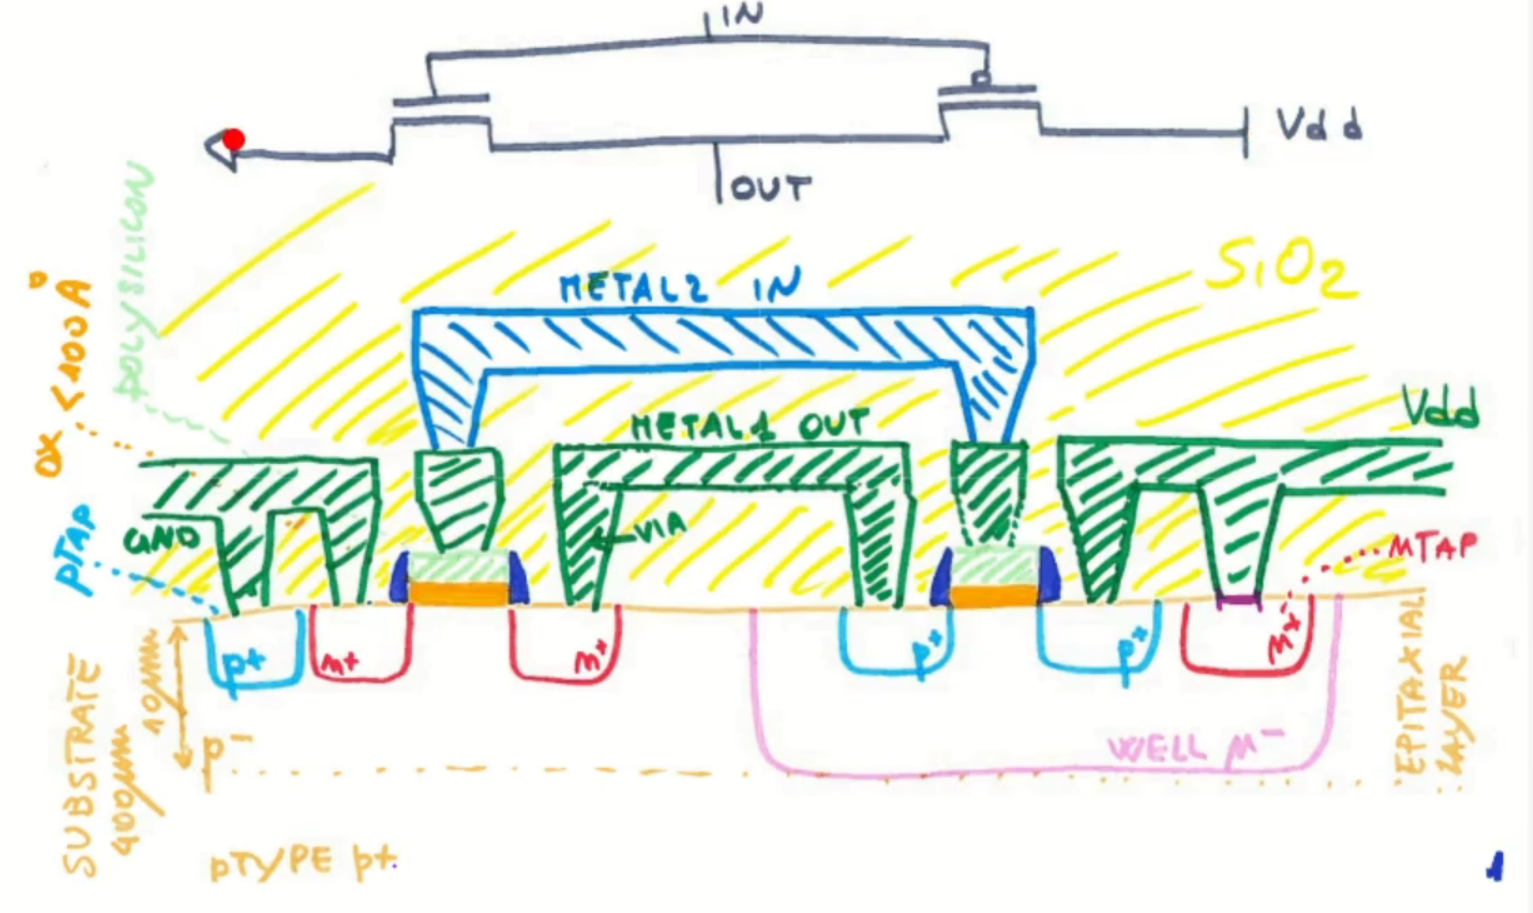 IN
Vdd
OUT
POLYSILICON
OX < 100 Å
SiO2
METAL2 IN
METAL1 OUT
Vdd
GND
VIA
pTAP
nTAP
p+
n+
n+
p+
p+
n+
SUBSTRATE
400µm
10µm
p-
WELL n-
EPITAXIAL
LAYER
pTYPE p+
1